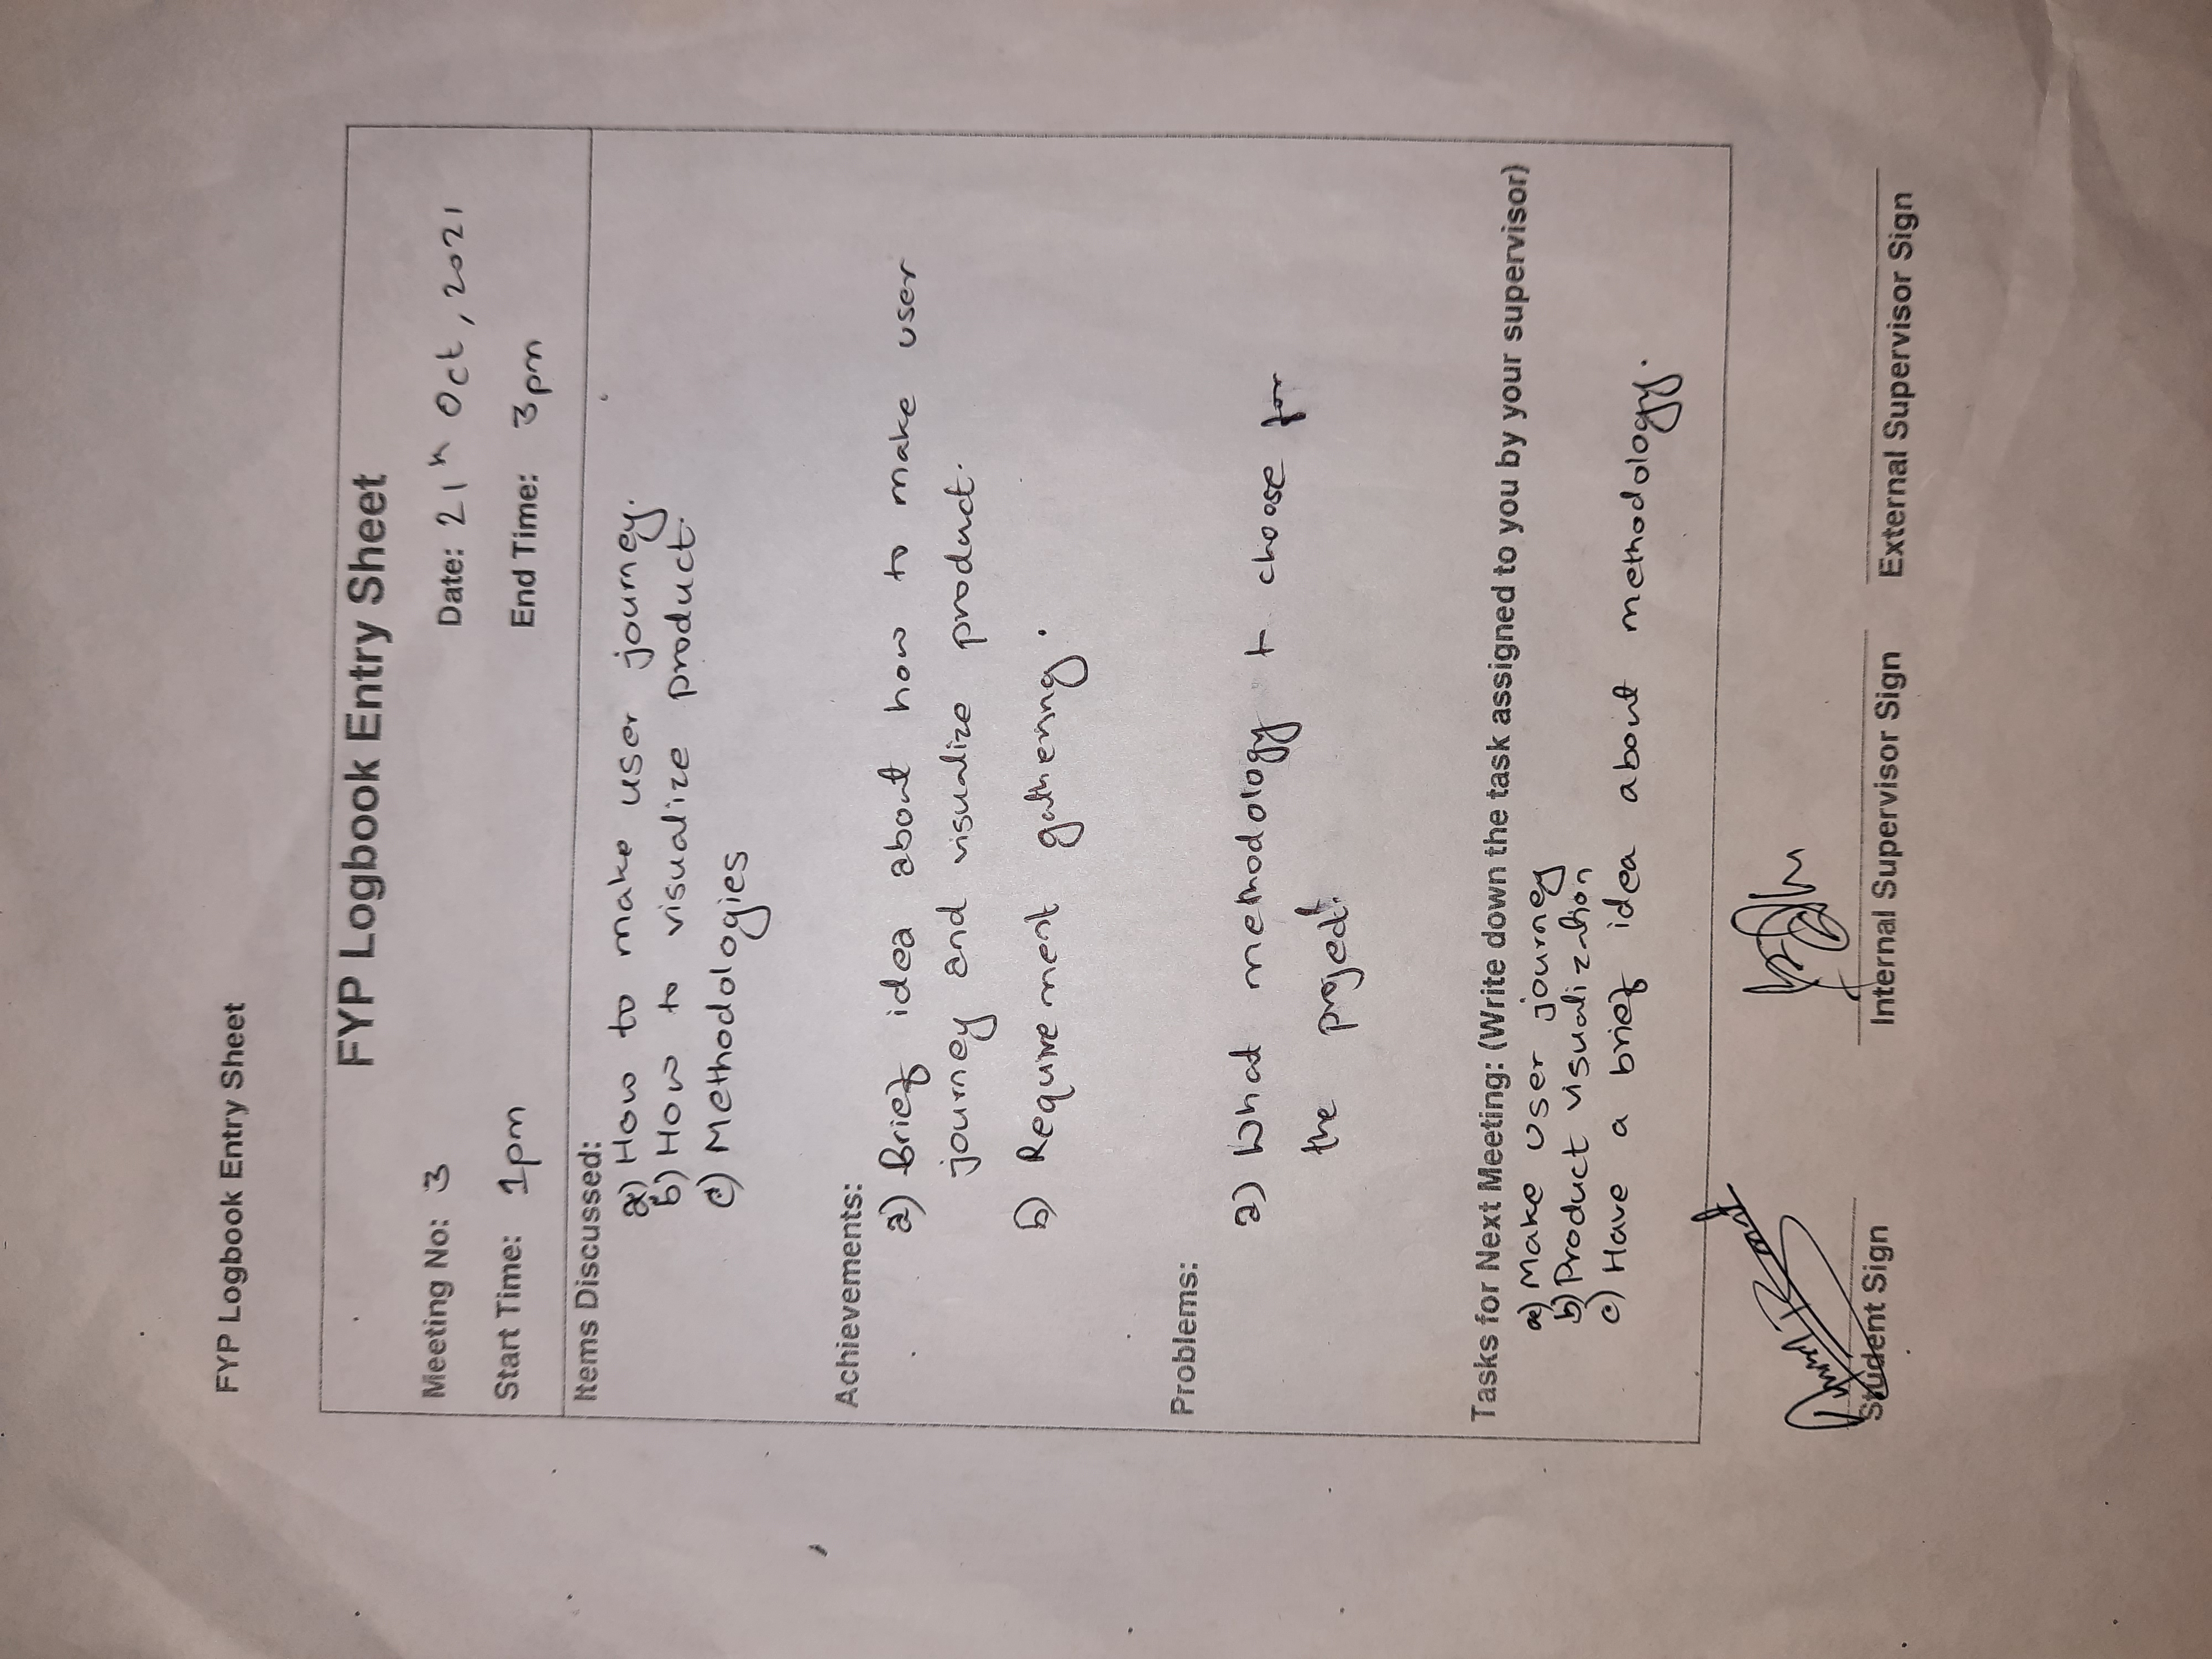 FYP Logbook Entry Sheet
FYP Logbook Entry Sheet
Meeting No: 3
Date: 21th Oct, 2021
Start Time: 1pm
End Time: 3pm
Items Discussed:
a) How to make user journey.
b) How to visualize product.
c) Methodologies
Achievements:
a) Brief idea about how to make user
journey and visualize product.
b) Requirement gathering.
Problems:
a) What methodology t choose for
the project.
Tasks for Next Meeting: (Write down the task assigned to you by your supervisor)
a) Make user journey
b) Product visualization
c) Have a brief idea about methodology.
Student Sign
Internal Supervisor Sign
External Supervisor Sign